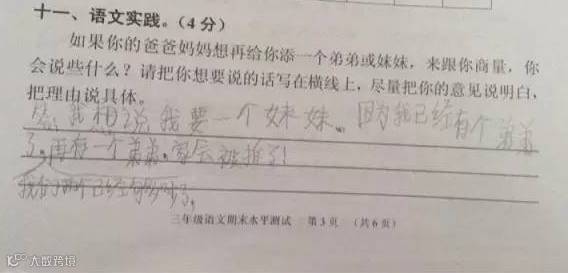 十一、语文实践。(4分)
如果你的爸爸妈妈想再给你添一个弟弟或妹妹，来跟你商量，你
会说些什么？请把你想要说的话写在横线上，尽量把你的意见说明白，
把理由说具体。
答：我想说我要一个妹妹。因为我已经有个弟弟
了。再有一个弟弟。家会被拆了！
我们两个已经够多了。
三年级语文期末水平测试 第3页 (共6页)
大数跨境